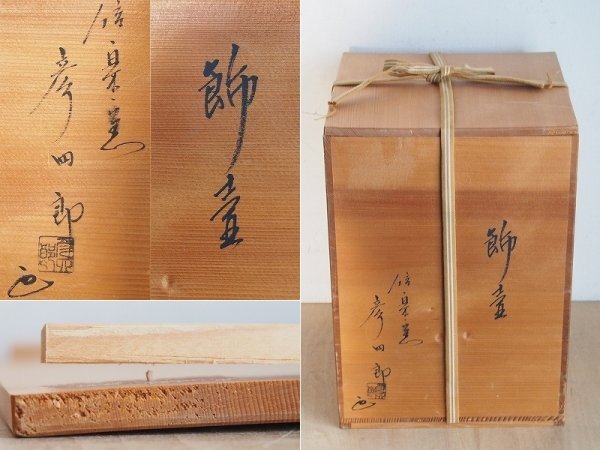 飾壷
信楽窯
彦四郎
飾壷
信楽窯
彦四郎